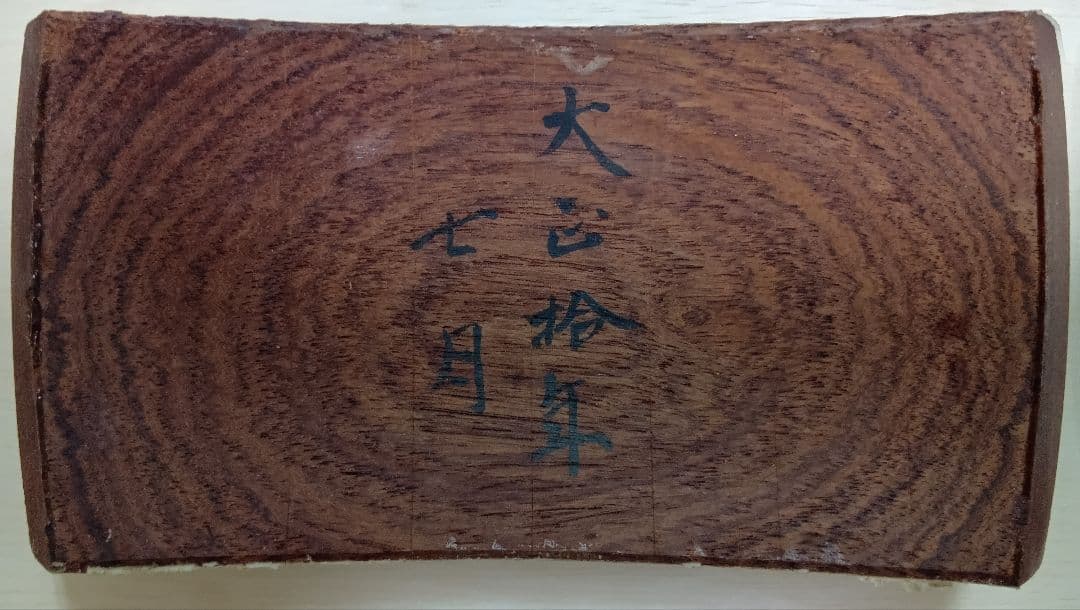 大正拾年
七月